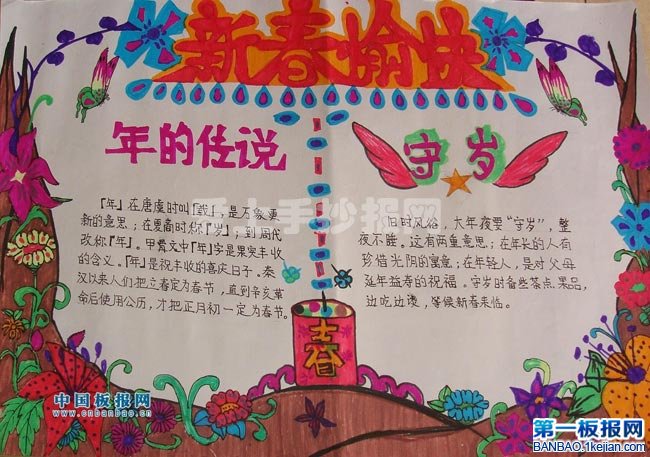 新春愉快
年的传说
「年」在唐虞时叫「载」,是万象更
新的意思;在夏商时你「岁」;到周代
改你「年」。甲骨文中「年」字是果实丰收
的含义。「年」是祝丰收的喜庆日子。秦
汉以来人们把立春定为春节,直到辛亥革
命后使用公历,才把正月初一定为春节。
守岁
旧时风俗,大年夜要“守岁”,整
夜不睡。这有两重意思;在年长的人有
珍惜光阴的寓意;在年轻人,是对父母
延年益寿的祝福。守岁时备些茶点果品,
边吃边谈,等候新春来临。
春
上手抄报网
中国板报网
www.cnbanbao.cn
第一板报网
BANBAO.1kejian.com